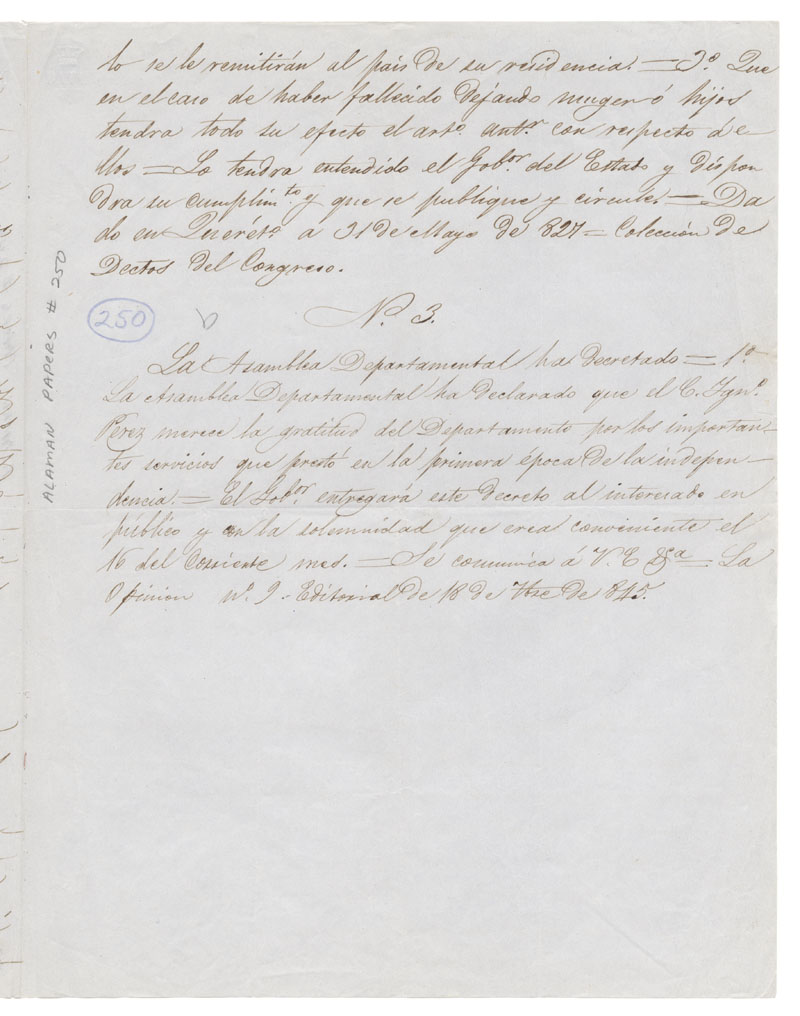 lo se le remitirán al país de su residencia. = 3.º Que
en el caso de haber fallecido dejando muger ó hijos
tendra todo su efecto el arto. antr. con respecto á e-
llos = Lo tendra entendido el Gobor. del Estado y dispon
dra su cumplimto. y que se publique y circule = Da
do en Queréto. a 31 de Mayo de 827 = Colección de
Dectos del Congreso.
N.º 3.
250
La Asamblea Departamental ha decretado = 1.º
La Asamblea Departamental ha declarado que el C. Ygno.
Perez merece la gratitud del Departamento por los importan-
tes servicios que prestó en la primera época de la indepen-
dencia. = El Gobor. entregará este decreto al interesado en
público y con la solemnidad que crea conveniente el
16 del Corriente mes. = Se comunica á V. E. &a = La
Opinion nº. 9. Editorial de 18 de 7bre de 845.
ALAMAN PAPERS # 250